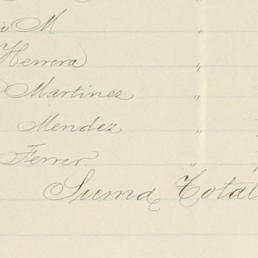 M "
Herrera "
Martinez "
Mendez "
Ferrer "
Suma Total